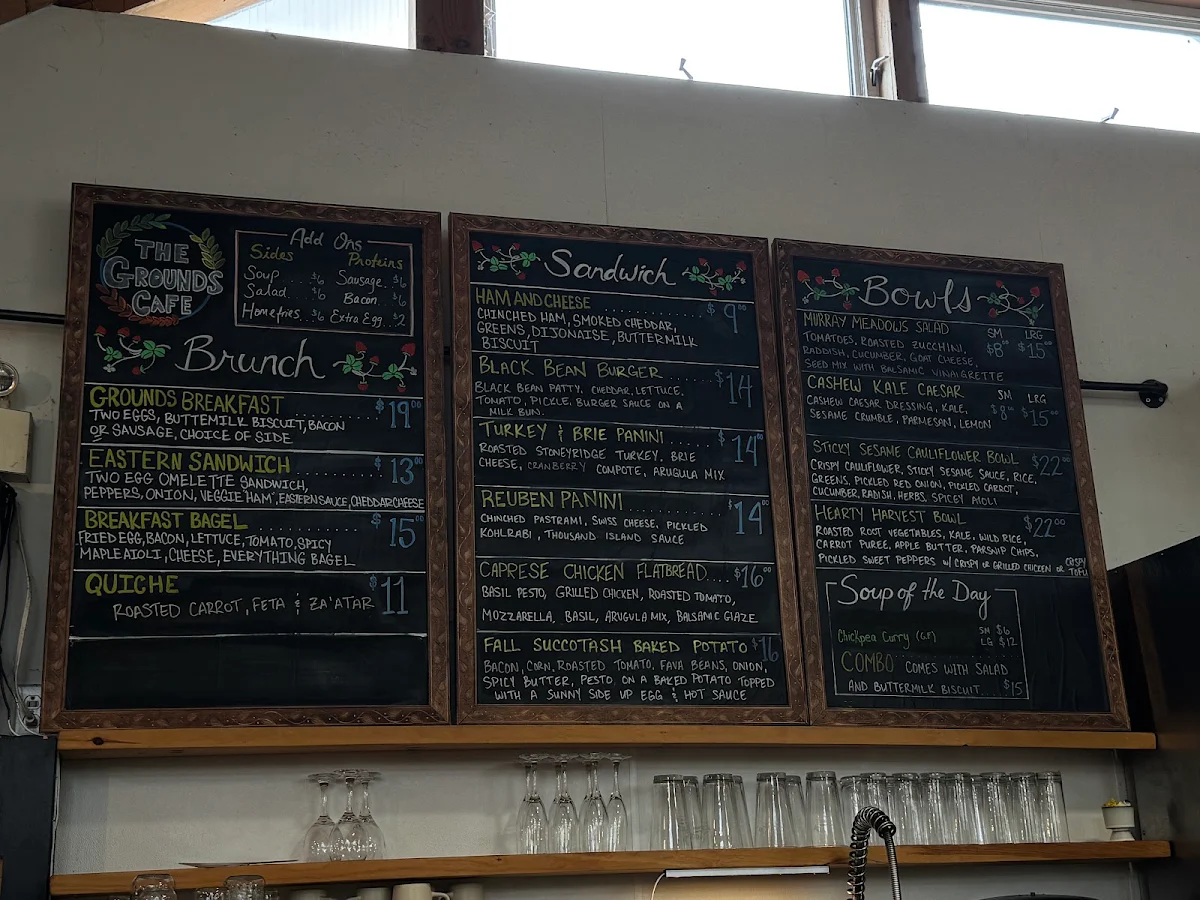 THE
GROUNDS
CAFE
Add Ons
Sides Proteins
Soup .. $6 Sausage. $6
Salad.. $6 Bacon. $6
Homefries.. $6 Extra Egg.. $2
Brunch
GROUNDS BREAKFAST ........ $19⁰⁰
TWO EGGS, BUTTEMILK BISCUIT, BACON
OR SAUSAGE, CHOICE OF SIDE
EASTERN SANDWICH ........ $13⁰⁰
TWO EGG OMELETTE SANDWICH,
PEPPERS, ONION, VEGGIE "HAM", EASTERN SAUCE, CHEDDAR CHEESE
BREAKFAST BAGEL ........ $15⁰⁰
FRIED EGG, BACON, LETTUCE, TOMATO, SPICY
MAPLE AIOLI, CHEESE, EVERYTHING BAGEL
QUICHE $11
ROASTED CARROT, FETA & ZA'ATAR
Sandwich
HAM AND CHEESE ........ $9⁰⁰
CHINCHED HAM, SMOKED CHEDDAR,
GREENS, DIJONAISE, BUTTERMILK
BISCUIT
BLACK BEAN BURGER ...... $14
BLACK BEAN PATTY, CHEDDAR, LETTUCE,
TOMATO, PICKLE, BURGER SAUCE ON A
MILK BUN.
TURKEY & BRIE PANINI ...... $14⁰⁰
ROASTED STONEYRIDGE TURKEY, BRIE
CHEESE, CRANBERRY COMPOTE, ARUGULA MIX
REUBEN PANINI ........ $14⁰⁰
CHINCHED PASTRAMI, SWISS CHEESE, PICKLED
KOHLRABI, THOUSAND ISLAND SAUCE
CAPRESE CHICKEN FLATBREAD.... $16⁰⁰
BASIL PESTO, GRILLED CHICKEN, ROASTED TOMATO,
MOZZARELLA, BASIL, ARUGULA MIX, BALSAMIC GLAZE
FALL SUCCOTASH BAKED POTATO $16
BACON, CORN, ROASTED TOMATO, FAVA BEANS, ONION,
SPICY BUTTER, PESTO, ON A BAKED POTATO TOPPED
WITH A SUNNY SIDE UP EGG & HOT SAUCE
Bowls
MURRAY MEADOWS SALAD SM LRG
TOMATOES, ROASTED ZUCCHINI, $8⁰⁰ $15⁰⁰
RADDISH, CUCUMBER, GOAT CHEESE,
SEED MIX WITH BALSAMIC VINAIGRETTE
CASHEW KALE CAESAR SM LRG
CASHEW CAESAR DRESSING, KALE, $8⁰⁰ $15⁰⁰
SESAME CRUMBLE, PARMESAN, LEMON
STICKY SESAME CAULIFLOWER BOWL $22⁰⁰
CRISPY CAULIFLOWER, STICKY SESAME SAUCE, RICE,
GREENS, PICKLED RED ONION, PICKLED CARROT,
CUCUMBER, RADISH, HERBS, SPICEY AIOLI
HEARTY HARVEST BOWL $22⁰⁰
ROASTED ROOT VEGETABLES, KALE, WILD RICE,
CARROT PUREE, APPLE BUTTER, PARSNIP CHIPS,
PICKLED SWEET PEPPERS W/ CRISPY OR GRILLED CHICKEN OR CRISPY TOFU
Soup of the Day
Chickpea Curry (GF) SM $6
LG $12
COMBO COMES WITH SALAD
AND BUTTERMILK BISCUIT.... $15